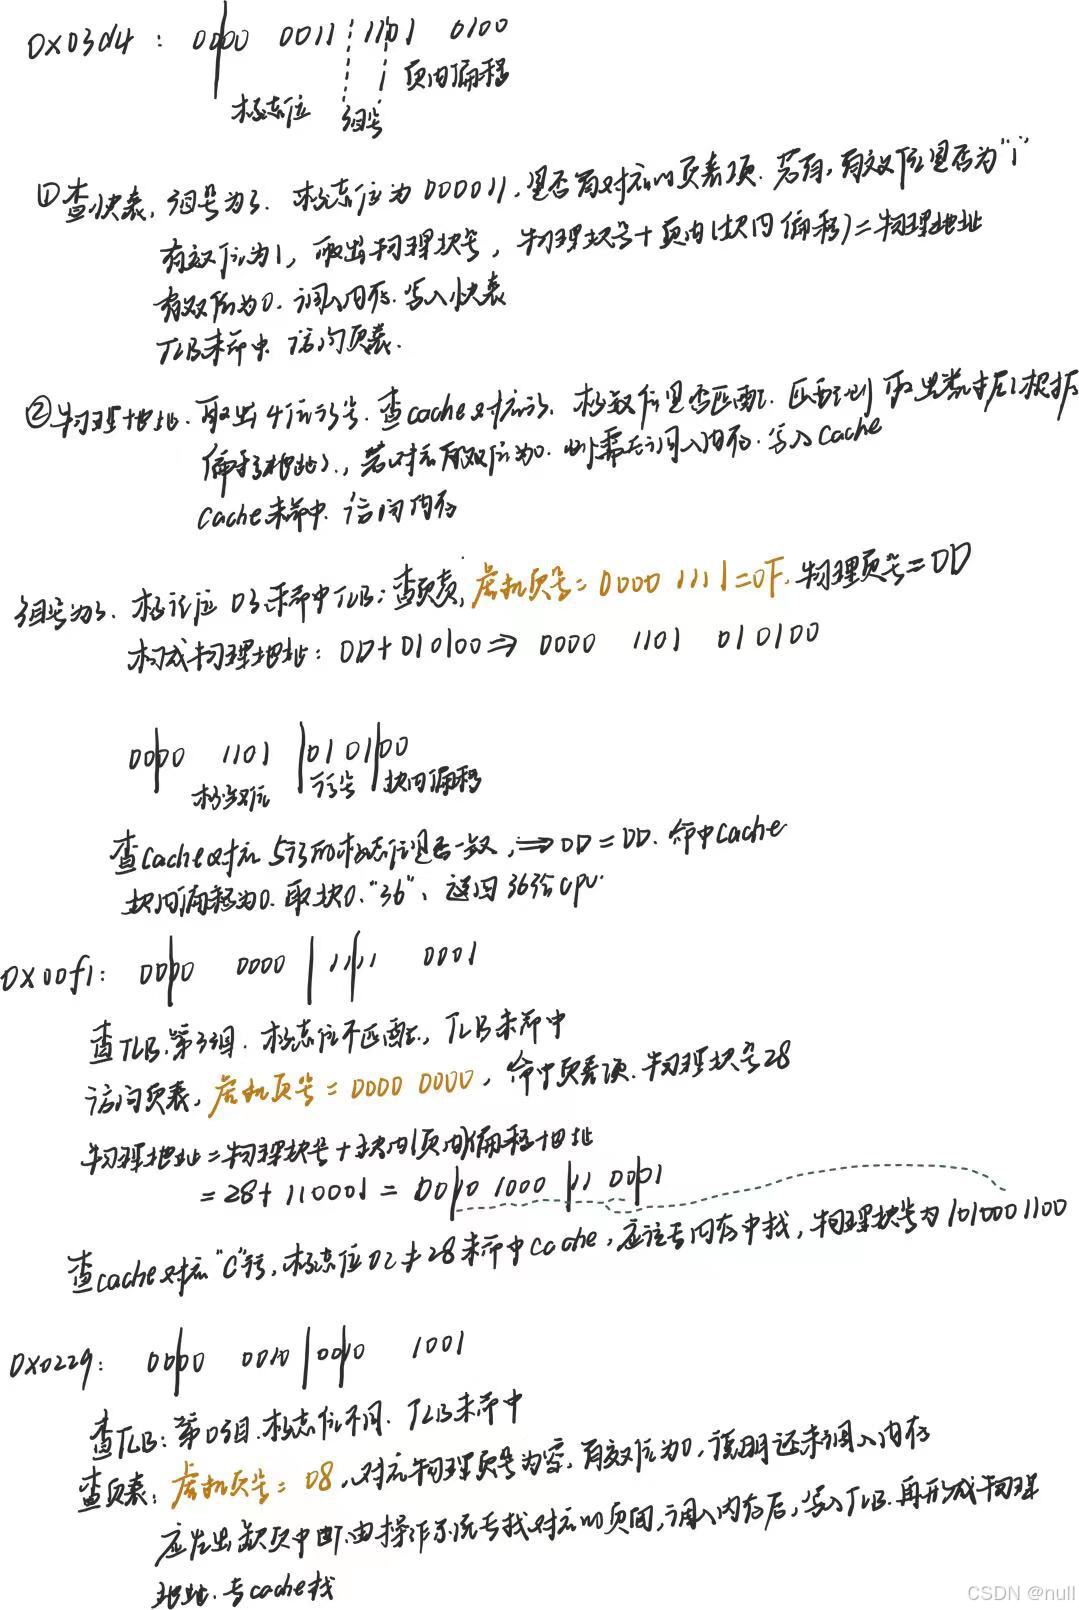 0x03d4： 0000 0011 1101 0100
标志位 组号 页内偏移
①查快表，组号为3. 标志位为000011.是否有对应的页表项. 若有,有效位是否为"1"
有效位为1，取出物理块号，物理块号+页内(块内偏移)=物理地址
有效位为0. 调入内存.写入快表
TLB未命中 访问页表.
②物理地址.取出4位行号.查cache对应行. 标致位是否匹配.匹配则取出数据(根据
偏移地址).，若对应有效位为0. 则需先调入内存.写入Cache
Cache未命中.访问内存
组号为3. 标记位 03.未命中TLB;查页表,虚拟页号=0000 1111=0F.物理页号=0D
构成物理地址：0D+010100⇒0000 1101 010100
0000 1101 010100
标致位 行号 块内偏移
查Cache对应5行的标志位是否一致，⇒0D=0D.命中Cache
块内偏移为0.取块0."36"，返回36给CPU.
0x00f1： 0000 0000 1111 0001
查TLB.第3组.标志位不匹配，TLB未命中
访问页表，虚拟页号=0000 0000，命中页表项.物理块号28
物理地址=物理块号+块内(页内)偏移地址
=28+110001=0010 1000 11 0001
查cache对应"C"行，标志位02≠28未命中Cache，应该去内存中找，物理块号为1010001100
0x0229： 0000 0010 0010 1001
查TLB：第0组.标志位不同. TLB未命中
查页表：虚拟页号=08，对应物理页号为空，有效位为0，说明还未调入内存
应发出缺页中断.由操作系统去找对应的页面,调入内存后，写入TLB.再形成物理
地址.去cache找
CSDN @null